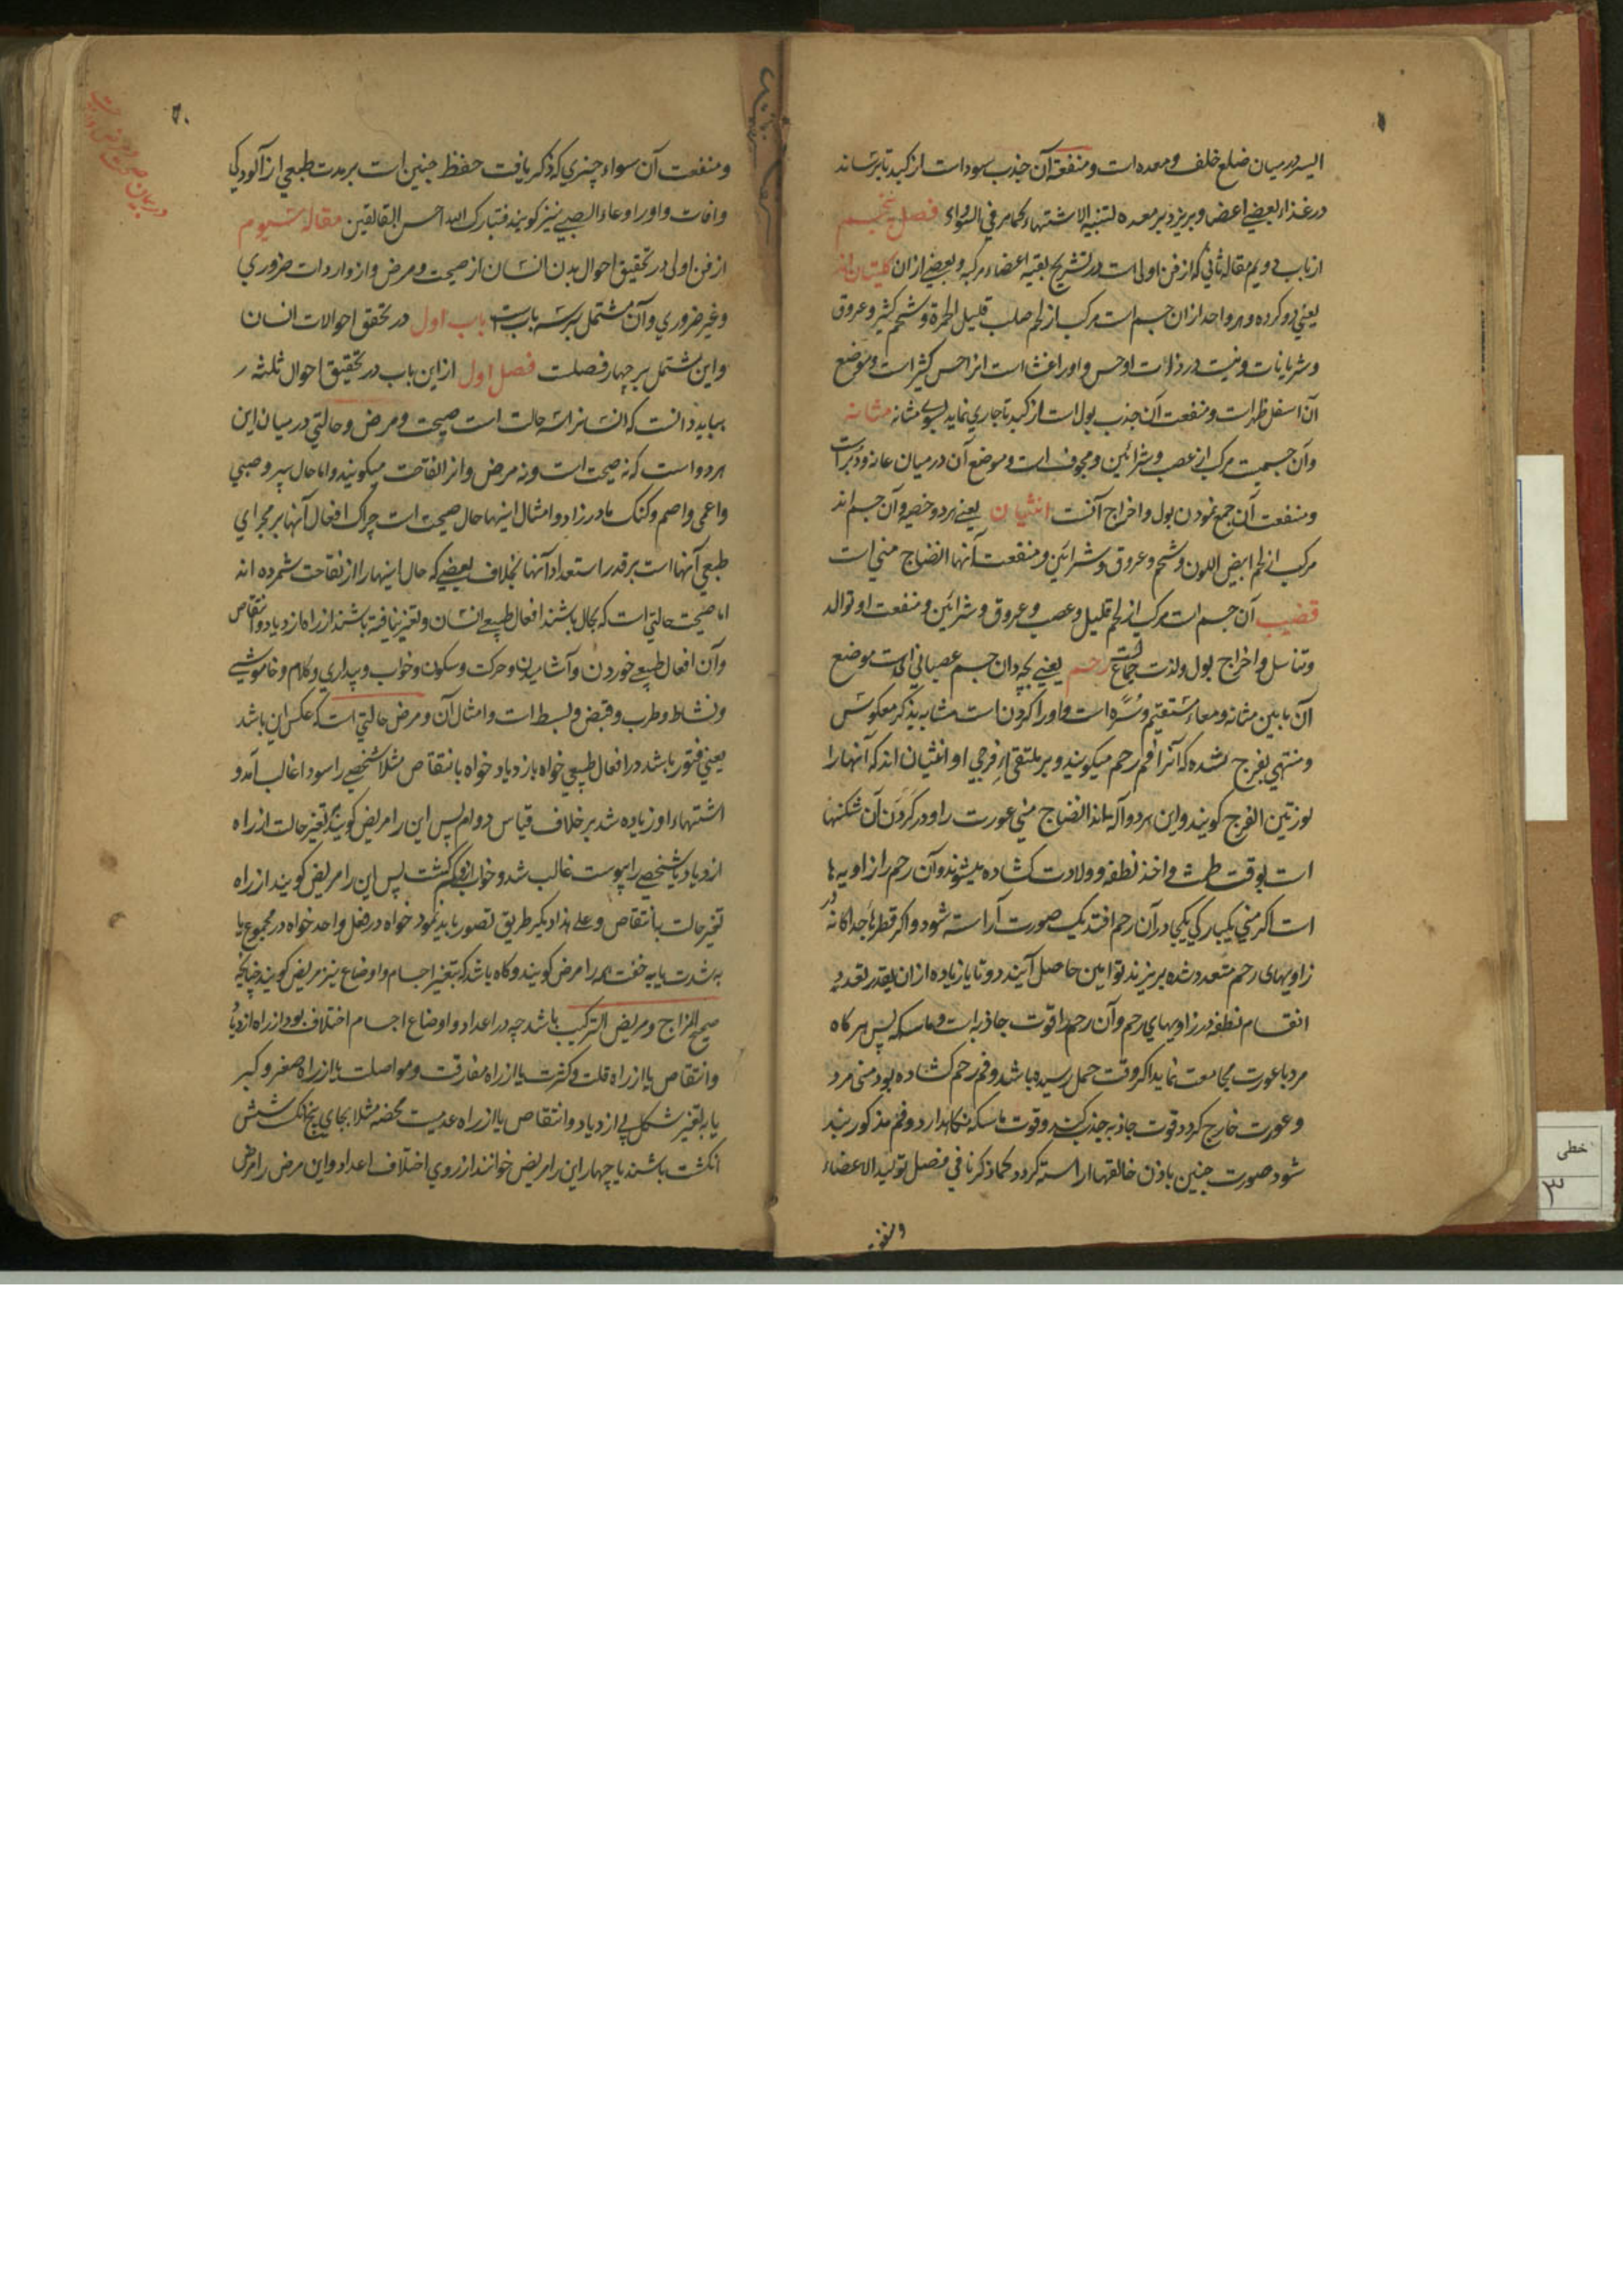 ایسر در میان ضلع خلف و معده است و منفعة آن جذب سودا است از کبد تا برساند
در غذاء بعضی اعضا و بریزد بر معده لتنبیه الاشتهاء کما مر فی السوداء فصل پنجم
از باب دویم مقاله ثانی که از فن اولی است در تشریح بقیه اعضاء مرکبه و بعضی ازان کلیتان اند
یعنی دو کرده و هر واحد ازان جسم است مرکب از لحم صلب قلیل الحمرة و شحم کثیر و عروق
و شریانات و نیست در ذات او حس و او را غشا است انرا حس کثیر است و موضع
آن اسفل ظهر است و منفعت آن جذب بول است از کبد تا جاری نماید بسوی مثانه مثانه
وآن جسمیست مرکب از عصب و شرائین و مجوف است و موضع آن درمیان عانه و دبر است
و منفعت آن جمع نمودن بول و اخراج آنست انثیان یعنی هر دو خصیه و آن جسم اند
مرکب از لحم ابیض اللون و شحم و عروق و شرائین و منفعت آنها انضاج منی است
قضیب آن جسم است مرکب از لحم قلیل و عصب و عروق و شرائین و منفعت او توالد
و تناسل و اخراج بول و لذت جماع است رحم یعنی بچه دان جسم عصبانی است موضع
آن مابین مثانه و معاء مستقیم و سره است و او را کردن است مشابه بذکر معکوس
و منتهی بفرج شده که آنرا فم رحم میکویند و بر ملتقی از فرجی او انثیان اند که آنها را
لوزتین الفرج کویند و این هر دو آله اند انضاج منی عورت را و در کردن آن شکنها
است بوقت طمث و اخذ نطفه و ولادت کشاده میشوند و آن رحم را زاویه ها
است اکر منی یکبارکی یکجا در آن رحم افتد یک صورت آراسته شود و اکر قطرها جداکانه در
زاویهای رحم متعدد شده بریزند توامین حاصل آیند دو تا یا زیاده ازان بقدر تعدد
انقسام نطفه در زاویهای رحم و آن رحم را قوت جاذبه است و ماسکه پس هرکاه
مرد با عورت مجامعت نماید اکر وقت حمل رسیده باشد و فم رحم کشاده بود منی مرد
و عورت خارج کردد قوت جاذبه جذب کند و قوت ماسکه نکاهدارد و فم مذکور بند
شود صورت جنین باذن خالقها اراسته کردد کما ذکرنا فی فصل تولید الاعضاء
و منفعت آن سواء چیزی که ذکر یافت حفظ جنین است بر مدت طبعی از آلودکی
و افات و او را وعاء الصبی نیز کویند فتبارک الله احسن الخالقین مقاله سیوم
از فن اولی در تحقیق احوال بدن انسان از صحت و مرض و از واردات ضروری
و غیر ضروری و آن مشتمل بر سه بابست باب اول در تحقق احوالات انسان
و این مشتمل بر چهار فصلست فصل اول ازین باب در تحقیق احوال ثلثه
بباید دانست که انسانرا سه حالت است صحت و مرض و حالتی درمیان این
هر دو است که نه صحت است و نه مرض و انرا نقاحت میکویند و اما حال پیر و صبی
و اعمی و اصم و کنک مادر زاد و امثال اینها حال صحت است چراکه افعال آنها بر مجرای
طبعی آنها است بر قدر استعداد آنها بخلاف بعضی که حال اینها را از نقاحت شمرده اند
اما صحت حالتی است که بحال باشند افعال طبیعی انسان و تغیر نیافته باشند از راه ازدیاد و انتقاص
وآن افعال طبیعی خوردن و آشامیدن و حرکت و سکون و خواب و بیداری و کلام و خاموشی
و نشاط و طرب و قبض و بسط است و امثال آن و مرض حالتی است که عکس این باشد
یعنی فتور باشد در افعال طبیعی خواه بازدیاد خواه بانتقاص مثلا شخصی را سودا غالب آمد و
اشتهاء او زیاده شد بر خلاف قیاس دوام پس این را مریض کویند بتغیر حالت از راه
ازدیاد یا شخصی را یبوست غالب شد و خواب او کم کشت پس این را مریض کویند از راه
تغیر حالت بانتقاص و علی هذا دیکر طریق تصور باید نمود خواه در فعل واحد خواه در مجموع یا
بشدت یا بخفت همه را مرض کویند و کاه باشد که بتغیر اجسام و اوضاع نیز مریض کویند چنانچه
صحیح المزاج و مریض الترکیب باشد چه در اعداد و اوضاع اجسام اختلاف بود از راه ازدیاد
و انتقاص یا از راه قلت و کثرت یا از راه مفارقت و مواصلت یا از راه صغر و کبر
یا بتغیر شکل بی ازدیاد و انتقاص یا از راه عدمیت محضه مثلا بجای پنج انکشت شش
انکشت باشند یا چهار این را مریض خوانند از روی اختلاف اعداد و این مرض را مرض